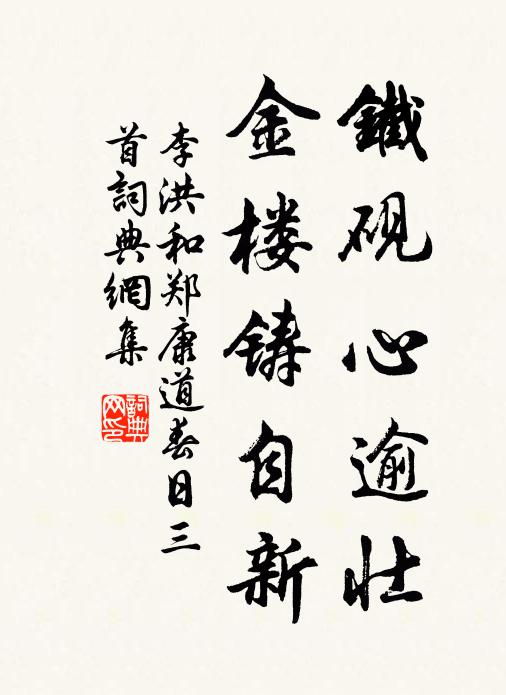 鐵硯心逾壮
金楼铸自新
李洪和郑康道春日三
首詞典網集
詞典
网印